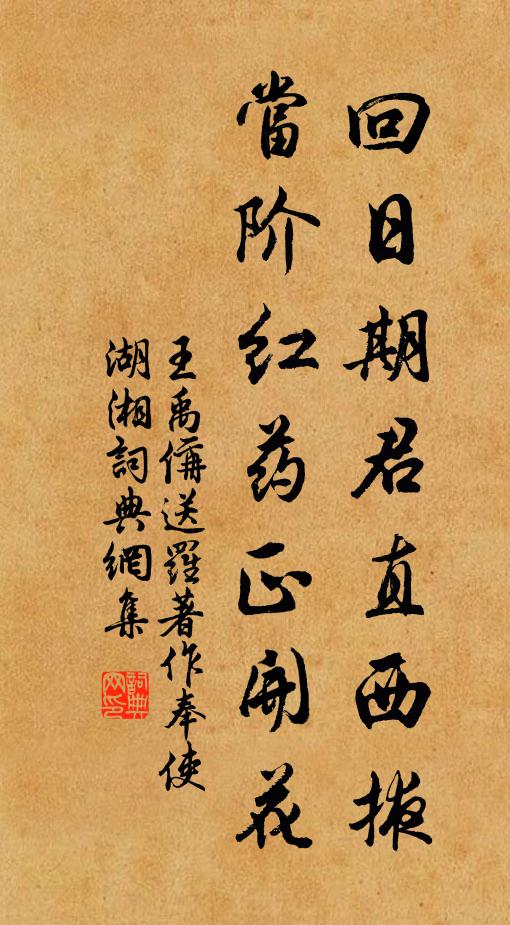 回日期君直西掖
當阶红药正開花
王禹偁送羅著作奉使
湖湘詞典網集
詞典网印